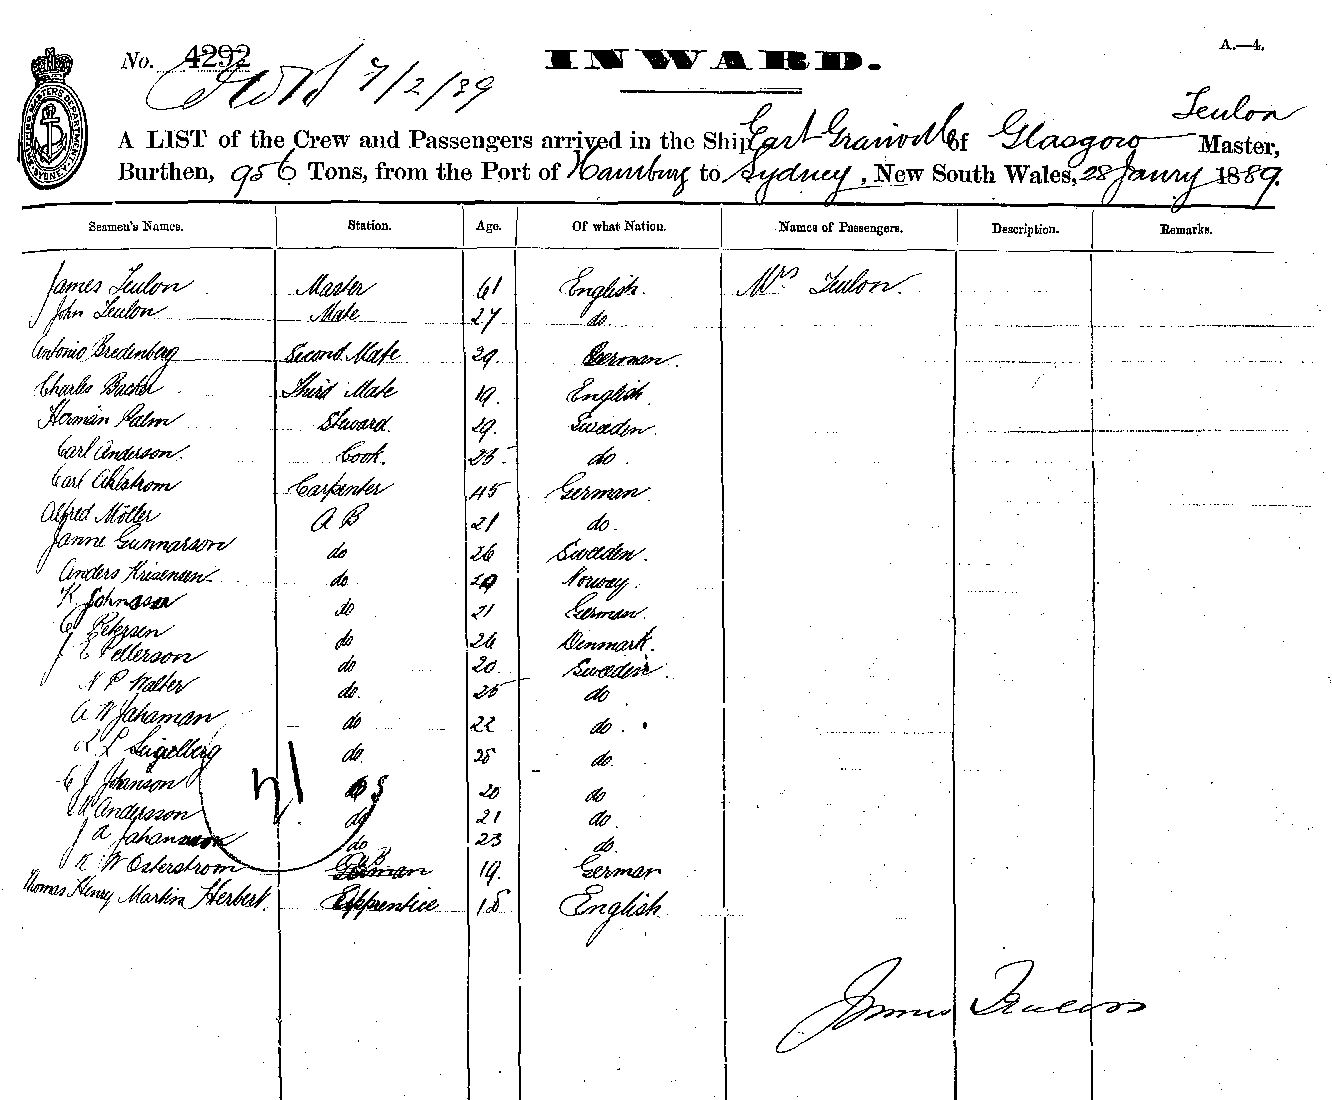 A.—4.
No. 4292
INWARD.
7/2/89
Teulon
A LIST of the Crew and Passengers arrived in the Ship Earl Granville of Glasgow Master,
Burthen, 956 Tons, from the Port of Hamburg to Sydney, New South Wales, 28 Janry 1889.
Seamen's Names. Station. Age. Of what Nation. Names of Passengers. Description. Remarks.
James Teulon Master 61 English. Mrs Teulon.
John Teulon Mate 27 do
Antonio Bredenberg Second Mate 29. German.
Charles Third Mate 19. English
Herman Palm Steward 29. Sweden.
Carl Anderson. Cook. 25 do.
Carl Ahlstrom Carpenter 45 German
Alfred Möller A B 21 do.
Janne Gunnarson do 26 Sweden.
Anders do 29 Norway.
K Johnsson do 21 German
C Petersen do 26 Denmark.
J E Petterson do 20. Sweden
N P Walter do. 25 do
A W Jahaman do 22 do.
L do. 25 do.
C J Johanson O S 20 do
Andersson do 21 do.
J A Johansson do 23 do.
K W Osterstrom A B 19. German
Thomas Henry Martin Herbert. Apprentice 18 English
21
James Teulon